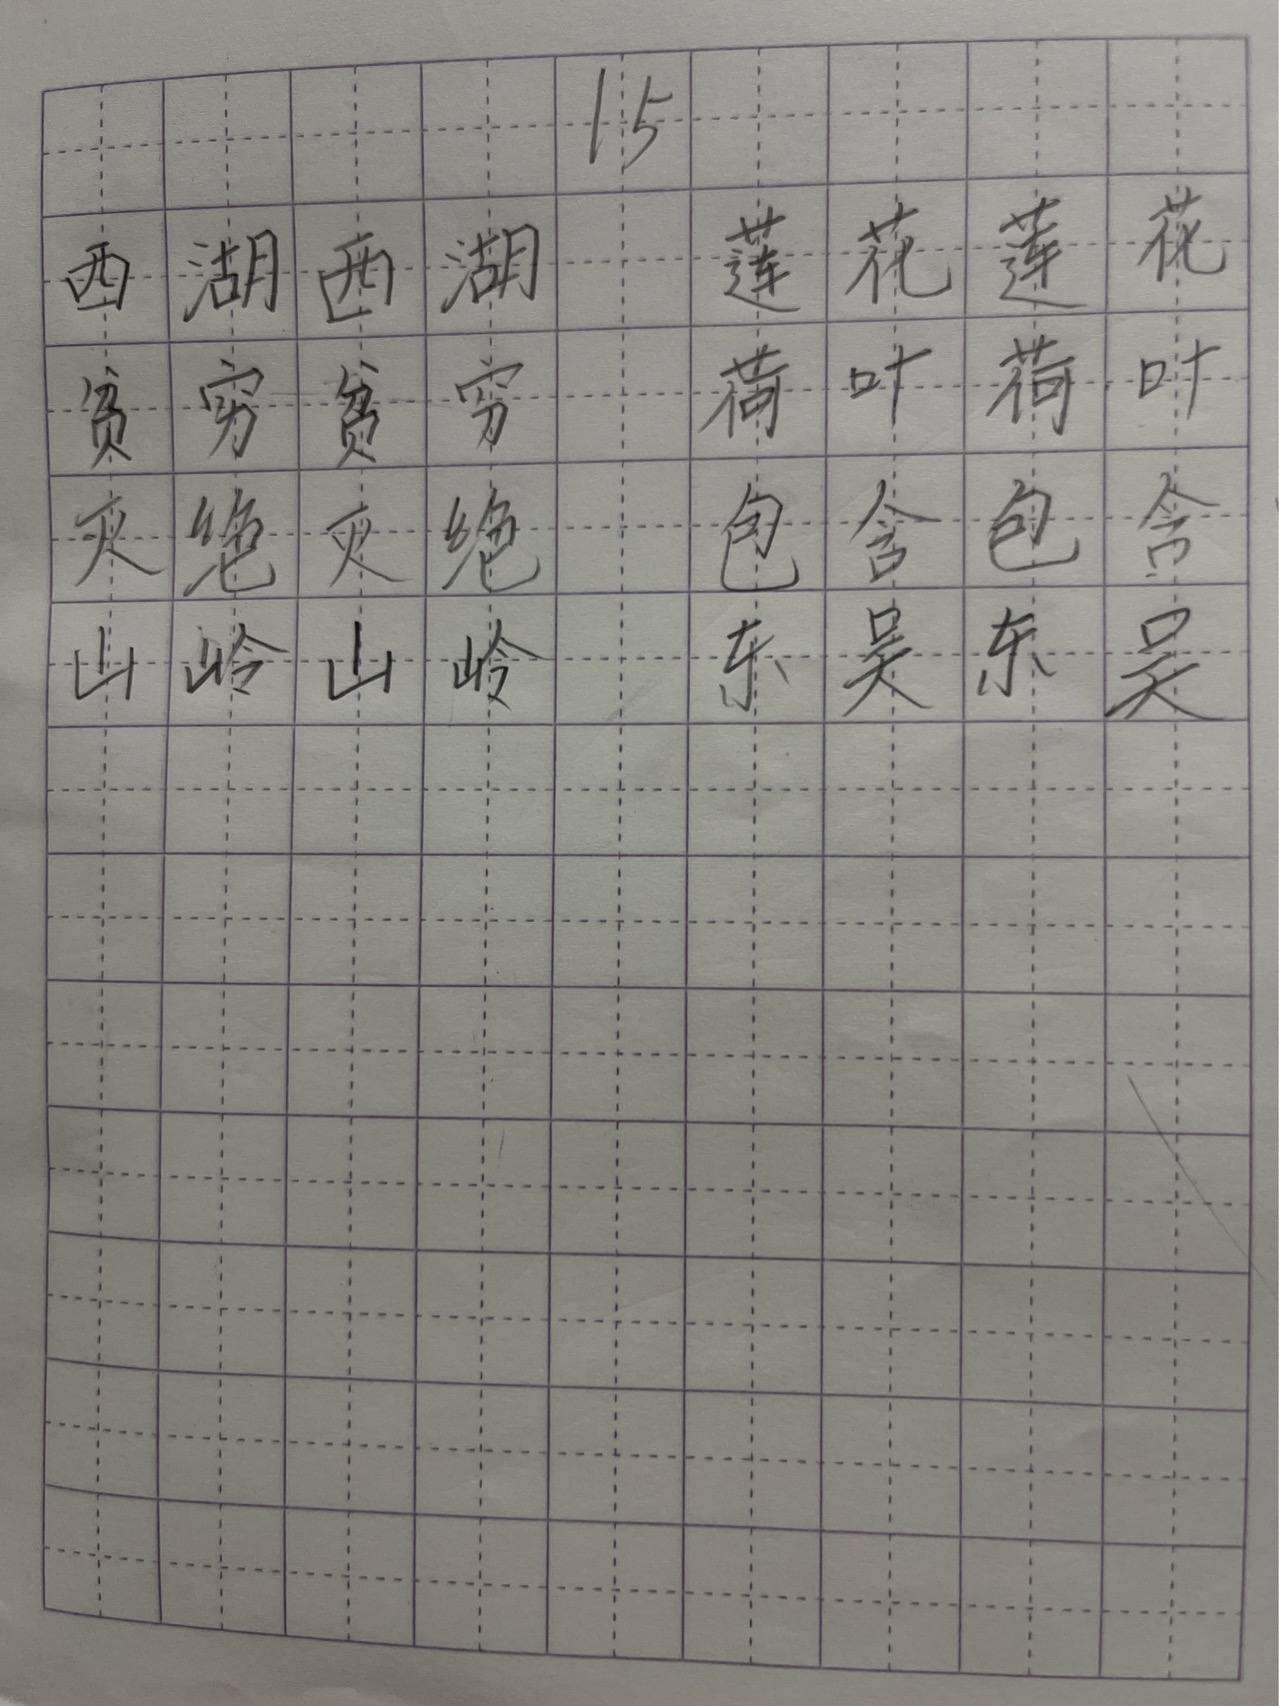 15
西湖西湖 莲花莲花
贫穷贫穷 荷叶荷叶
灭绝灭绝 包含包含
山岭山岭 东吴东吴